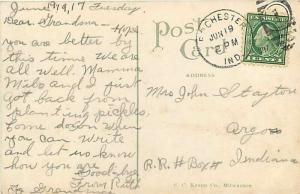 June 19, 17 Tuesday
Dear. Grandma - Hope
you are better by
this time we are
all well. Mamma
Malo and I just
got back from
planting pickles,
Come down when
you can. Write
and let us know
how you are
Good-by
From Ruth
To Grandma
Post
Card
ADDRESS
CHESTER
JUN 19
PM
IND.
Mrs John Slayton
Argos
Indiana
R.R. # Box #
C. C. Kropp Co., Milwaukee